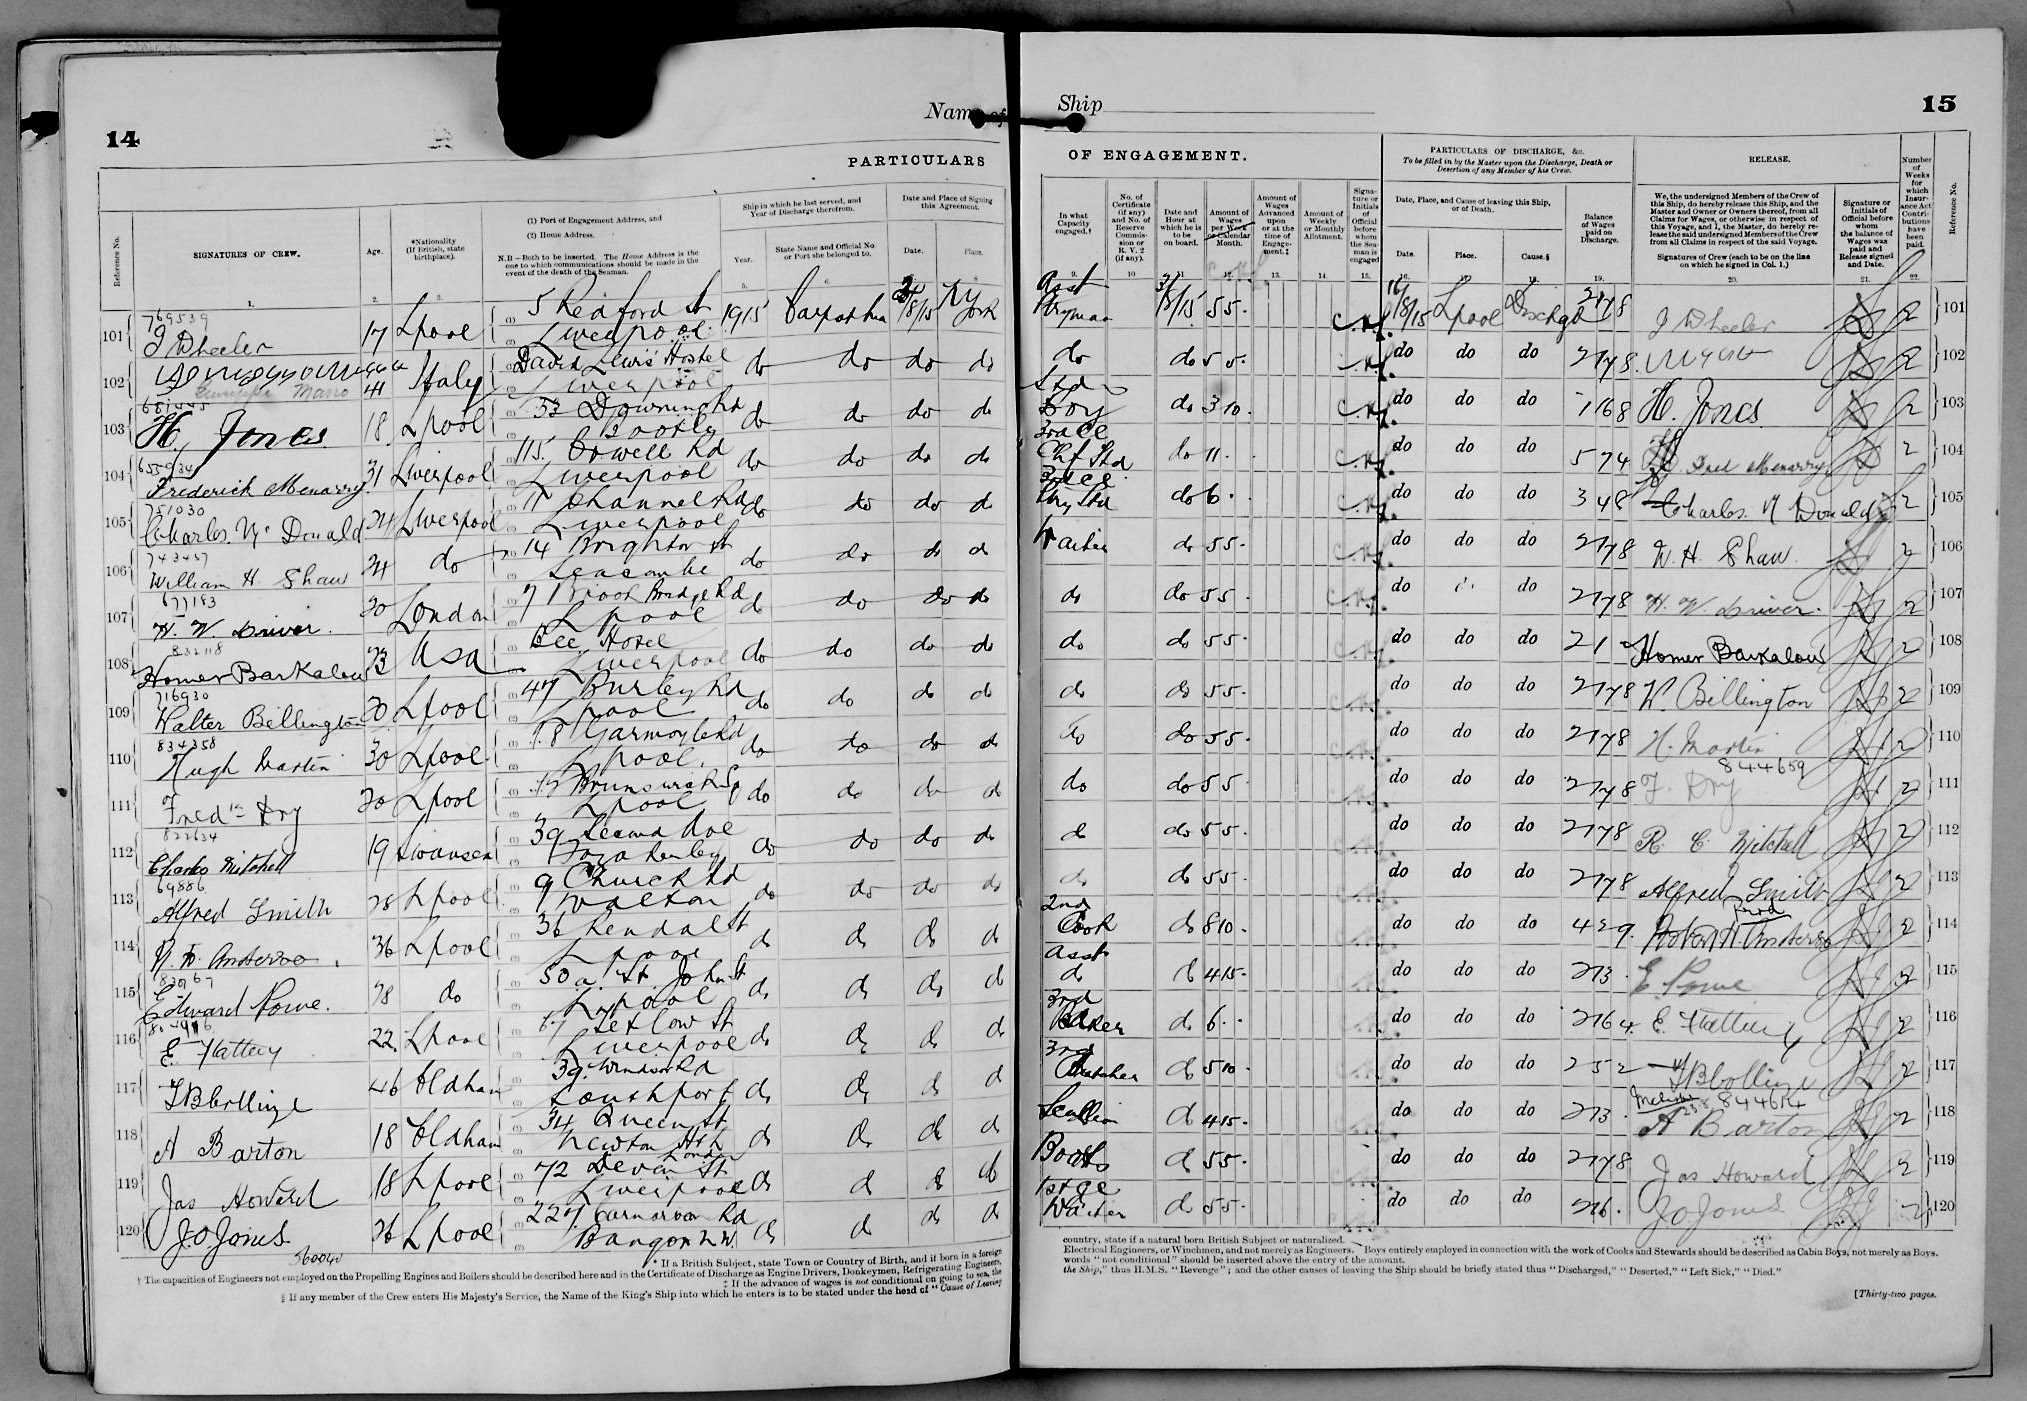 14
Name of
PARTICULARS
Reference No.
SIGNATURES OF CREW.
Age.
*Nationality
(If British, state
birthplace).
(1) Port of Engagement Address, and
(2) Home Address.
N.B—Both to be inserted. The Home Address is the
one to which communications should be made in the
event of the death of the Seaman.
Ship in which he last served, and
Year of Discharge therefrom.
Year.
State Name and Official No.
or Port she belonged to.
Date and Place of Signing
this Agreement.
Date.
Place.
1. 2. 3. 5. 6. 8
769539
101 J Wheeler 17 Lpool 5 Redford St Liverpool 1915 Carpathia 8/15 N York
102 41 Italy David Lewis Hostel Liverpool do do do do
681445
103 H. Jones 18 Lpool 33 Downing Rd Bootle do do do do
104 Frederick Menarry 31 Liverpool 115 Cowell Rd Liverpool do do do do
751030
105 Charles Mc Donald 24 Liverpool 11 Channel Rd Liverpool do do do do
743457
106 William H Shaw 24 do 14 Brighton St Seacombe do do do do
677183
107 H. W. Driver. 20 London 7 Brook Bridge Rd Lpool do do do do
832118
108 Homer Barkalow 23 USA Bee Hotel Liverpool do do do do
716930
109 Walter Billington 20 Lpool 47 Burley Rd Lpool do do do do
834358
110 Hugh Martin 30 Lpool 18 Garmoyle Rd Lpool. do do do do
111 Fredk Dry 20 Lpool Brunswick Lpool do do do do
822634
112 Charles Mitchell 19 Swansea 39 Fazakerley do do do do
69886
113 Alfred Smith 28 Lpool 9 Church Rd Walton do do do do
114 R. H. Anderson 36 Lpool 36 Kendal St Lpool do do do do
115 Edward Rowe. 28 do 50a St. John St Lpool do do do do
116 E. Flattery 22 Lpool 67 Liverpool do do do do
117 46 Oldham 39 Windsor Rd Southport do do do do
118 A Barton 18 Oldham 34 Queen St Newton Hth do do do do
119 Jas Howard 18 Lpool 72 Devon St Liverpool do do do do
120 J. O Jones 26 Lpool 227 Carnarvon Rd Bangor N W. do do do do
560040
* If a British Subject, state Town or Country of Birth, and if born in a foreign
† The capacities of Engineers not employed on the Propelling Engines and Boilers should be described here and in the Certificate of Discharge as Engine Drivers, Donkeymen, Refrigerating Engineers,
‡ If the advance of wages is not conditional on going to sea, the
§ If any member of the Crew enters His Majesty's Service, the Name of the King's Ship into which he enters is to be stated under the head of "Cause of Leaving
Ship
15
OF ENGAGEMENT.
In what
Capacity
engaged.†
No. of
Certificate
(if any)
and No. of
Reserve
Commis-
sion or
R. V. 2
(if any).
Date and
Hour at
which he is
to be
on board.
Amount of
Wages
per Week
or Calendar
Month.
Amount of
Wages
Advanced
upon
or at the
time of
Engage-
ment.‡
Amount of
Weekly
or Monthly
Allotment.
Signa-
ture or
Initials
of
Official
before
whom
the Sea-
man is
engaged
PARTICULARS OF DISCHARGE, &c.
To be filled in by the Master upon the Discharge, Death or
Desertion of any Member of his Crew.
Date, Place, and Cause of leaving this Ship,
or of Death.
Date.
Place.
Cause.§
Balance
of Wages
paid on
Discharge.
RELEASE.
We, the undersigned Members of the Crew of
this Ship, do hereby release this Ship, and the
Master and Owner or Owners thereof, from all
Claims for Wages, or otherwise in respect of
this Voyage, and I, the Master, do hereby re-
lease the said undersigned Members of the Crew
from all Claims in respect of the said Voyage.
Signatures of Crew (each to be on the line
on which he signed in Col. 1.)
Signature or
Initials of
Official before
whom
the balance of
Wages was
paid and
Release signed
and Date.
Number
of
Weeks
for
which
Insur-
ance Act
Contri-
butions
have
been
paid.
Reference No.
9. 10 11. 12. 13. 14. 15. 16. 17. 18. 19. 20. 21. 22.
Asst Pryman 8/15 5 5. 16/8/15 Lpool Dischgd 2 17 8 J Wheeler 2 101
do do 5 5. do do do 2 17 8 2 102
Std Boy do 3 10. do do do 1 16 8 H. Jones 2 103
3rd Cl Chf Std do 11. do do do 5 7 4 Fred Menarry 2 104
3rd Cl Pry Std do 6. do do do 3 4 8 Charles Mc Donald 2 105
Waiter do 5 5. do do do 2 17 8 W. H. Shaw. 2 106
do do 5 5. do do 2 17 8 H. W. Driver. 2 107
do do 5 5. do do do 2 1 2 Homer Barkalow 2 108
do do 5 5. do do do 2 17 8 W. Billington 2 109
do do 5 5. do do do 2 17 8 H. Martin 2 110
844659
do do 5 5. do do do 2 17 8 F. Dry 2 111
do do 5 5. do do do 2 17 8 R. C. Mitchell 2 112
do do 5 5. do do do 2 17 8 Alfred Smith 2 113
2nd Cook do 8 10. do do do 4 2 9. Robert H. Anderson 2 114
Asst do do 4 15. do do do 2 7 3. E. Rowe 2 115
3rd Baker do 6. do do do 2 16 4. E. Flattery 2 116
3rd Butcher do 5 10. do do do 2 5 2 2 117
844614
Scullion do 4 15. do do do 2 7 3. A Barton 2 118
Boots do 5 5. do do do 2 17 8 Jas Howard 2 119
1st Cl Waiter do 5 5. do do do 2 16. J. O. Jones 2 120
country, state if a natural born British Subject or naturalized.
Electrical Engineers, or Winchmen, and not merely as Engineers. Boys entirely employed in connection with the work of Cooks and Stewards should be described as Cabin Boys, not merely as Boys.
words "not conditional" should be inserted above the entry of the amount.
the Ship," thus H.M.S. "Revenge"; and the other causes of leaving the Ship should be briefly stated thus "Discharged," "Deserted," "Left Sick," "Died."
[Thirty-two pages.